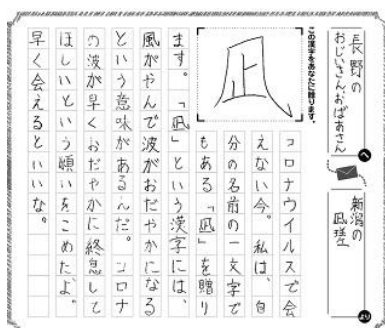 長野の
おじいさんおばあさん
へ
新潟の
凪瑳
より
この漢字をあなたに贈ります。
凪
コロナウイルスで会
えない今。私は、自
分の名前の一文字で
もある「凪」を贈り
ます。「凪」という漢字には、
風がやんで波がおだやかになる
という意味があるんだ。コロナ
の波が早くおだやかに終息して
ほしいという願いをこめたよ。
早く会えるといいな。